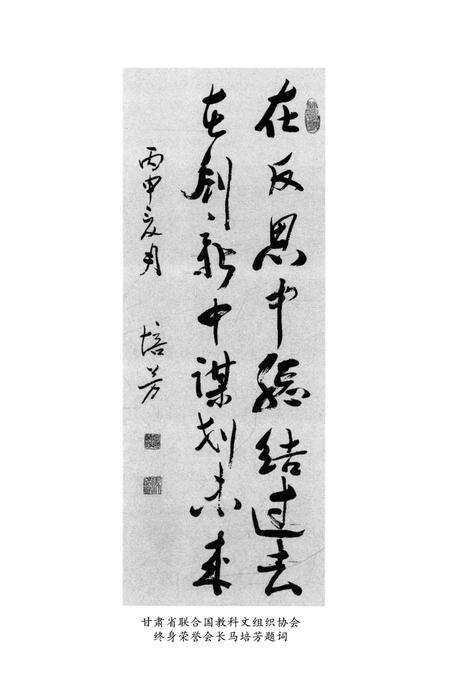 在反思中总结过去
在创新中谋划未来
丙申夏月
培芳
甘肃省联合国教科文组织协会
终身荣誉会长马培芳题词